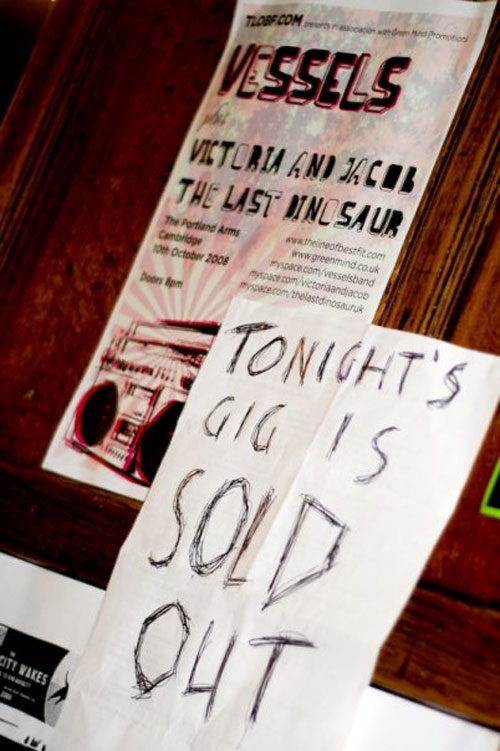 TLOBF.COM presents in association with Green Mind Promotions
VESSELS
plus
VICTORIA AND JACOB
THE LAST DINOSAUR
The Portland Arms
Cambridge
10th October 2008
Doors 8pm
www.thelineofbestfit.com
www.greenmind.co.uk
myspace.com/vesselsband
myspace.com/victoriaandjacob
myspace.com/thelastdinosauruk
TONIGHT'S
GIG IS
SOLD
OUT
THE
CITY WAKES